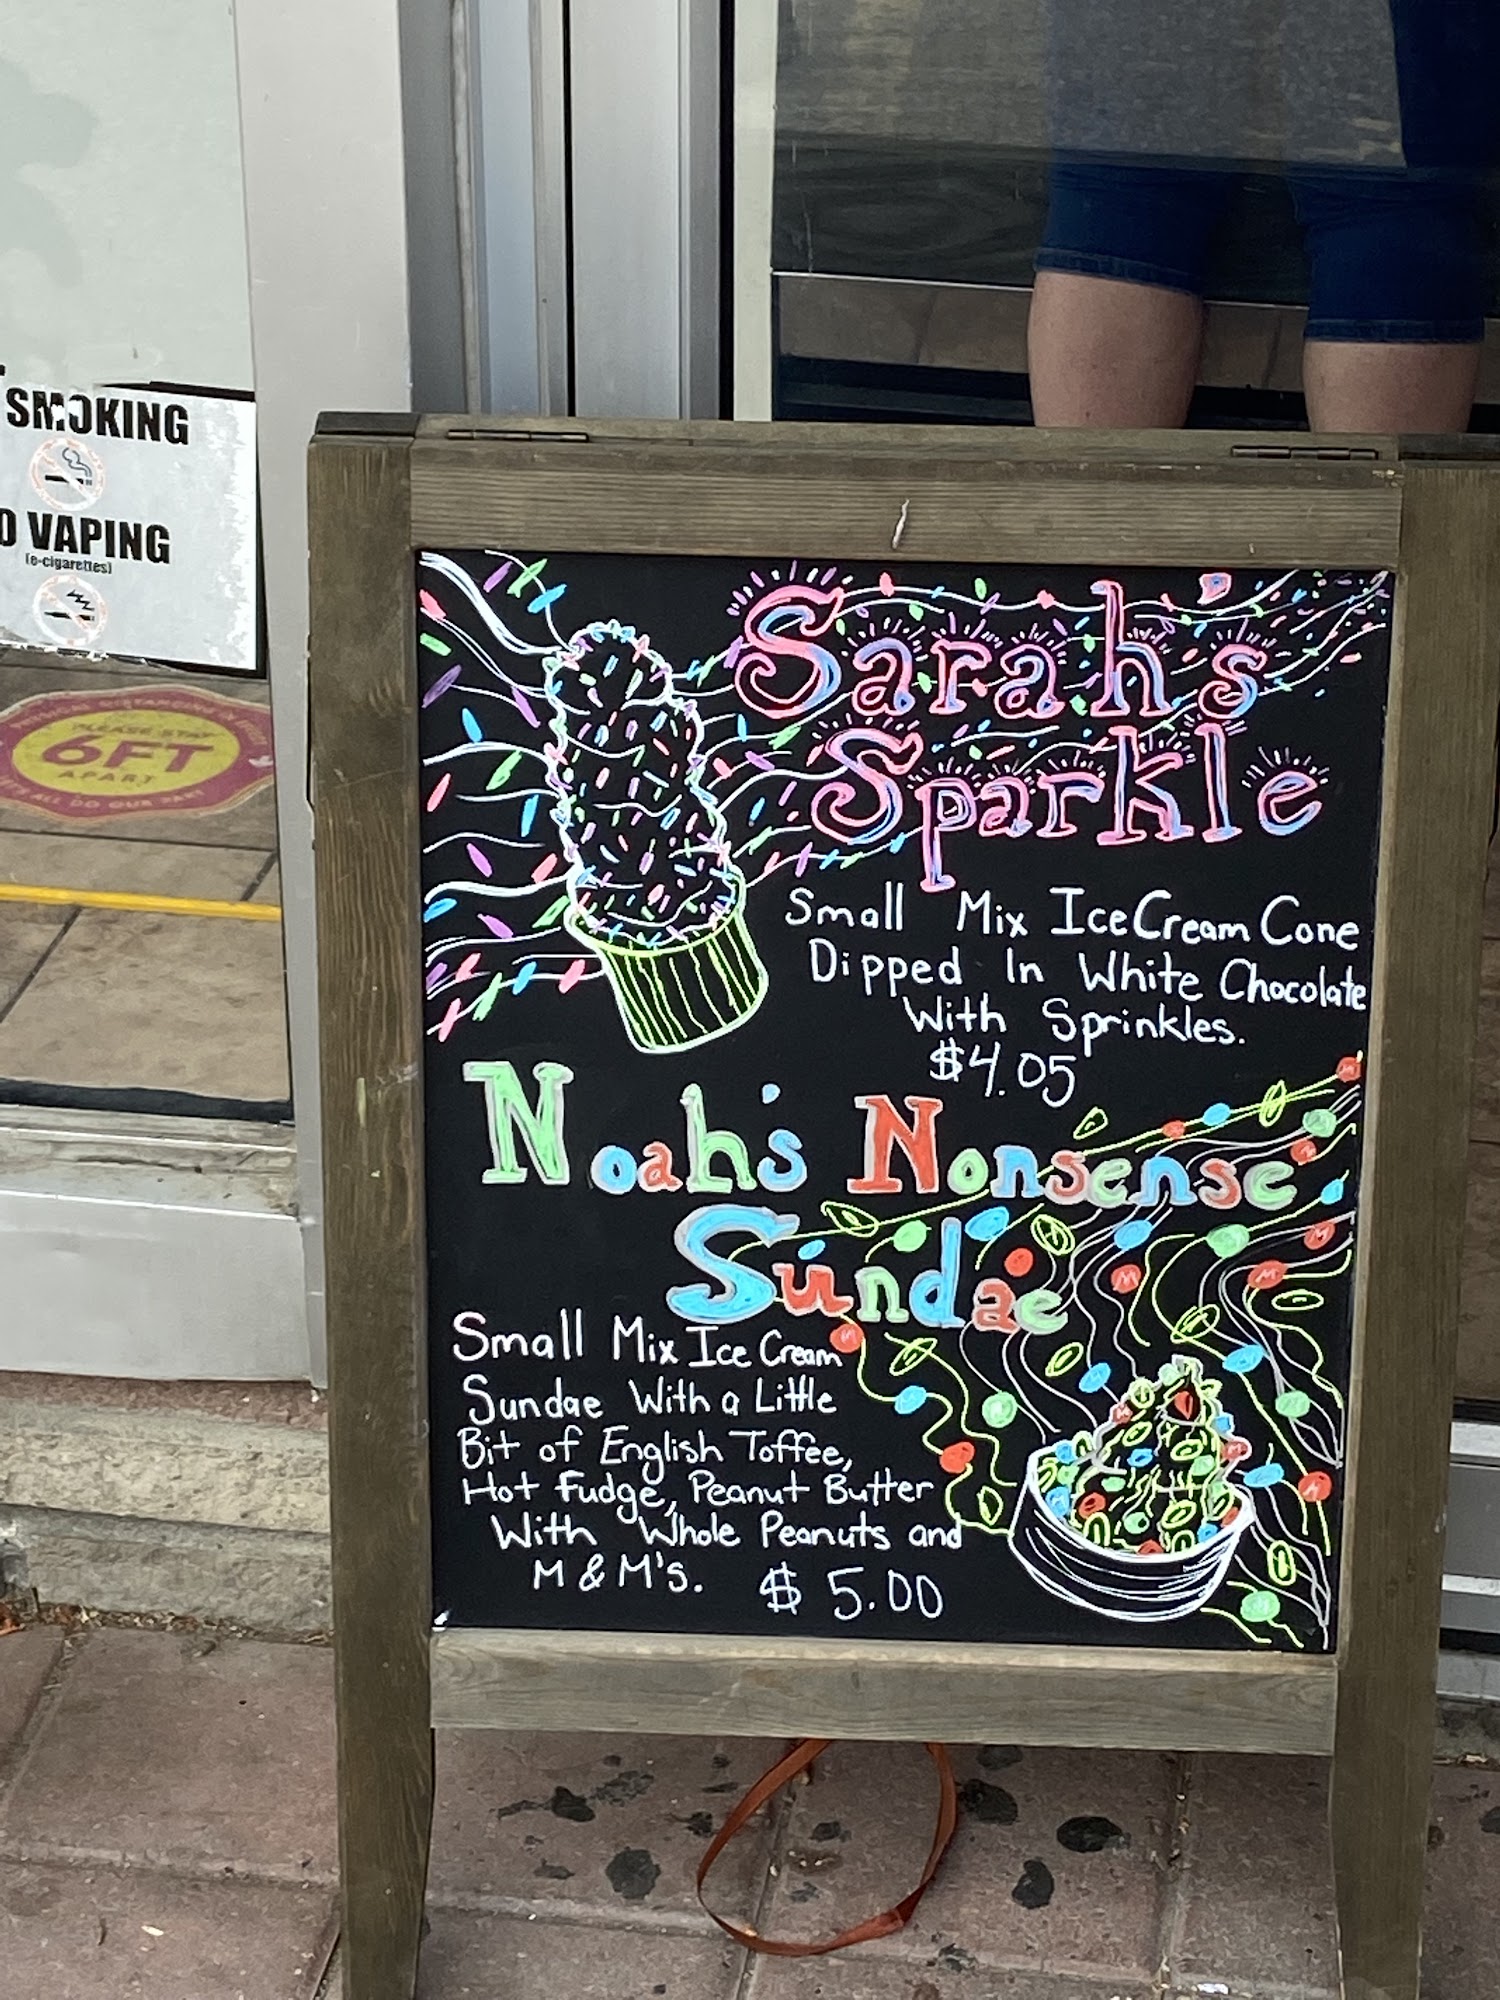 SMOKING
VAPING
(e-cigarettes)
PLEASE STAY
6FT
APART
Sarah's
Sparkle
Small Mix Ice Cream Cone
Dipped In White Chocolate
With Sprinkles.
$4.05
Noah's Nonsense
Sundae
Small Mix Ice Cream
Sundae With a Little
Bit of English Toffee,
Hot Fudge, Peanut Butter
With Whole Peanuts and
M & M's. $ 5.00